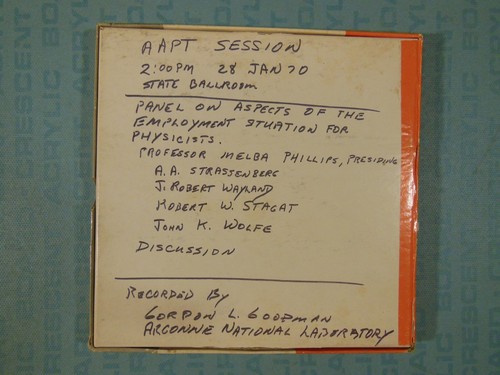 AAPT SESSION
2:00PM 28 JAN 70
STATE BALLROOM
PANEL ON ASPECTS OF THE
EMPLOYMENT SITUATION FOR
PHYSICISTS.
PROFESSOR MELBA PHILLIPS, PRESIDING
A.A. STRASSENBERG
J. ROBERT WAYLAND
ROBERT W. STAGAT
JOHN K. WOLFE
DISCUSSION
RECORDED BY
GORDON L. GOODMAN
ARGONNE NATIONAL LABORATORY